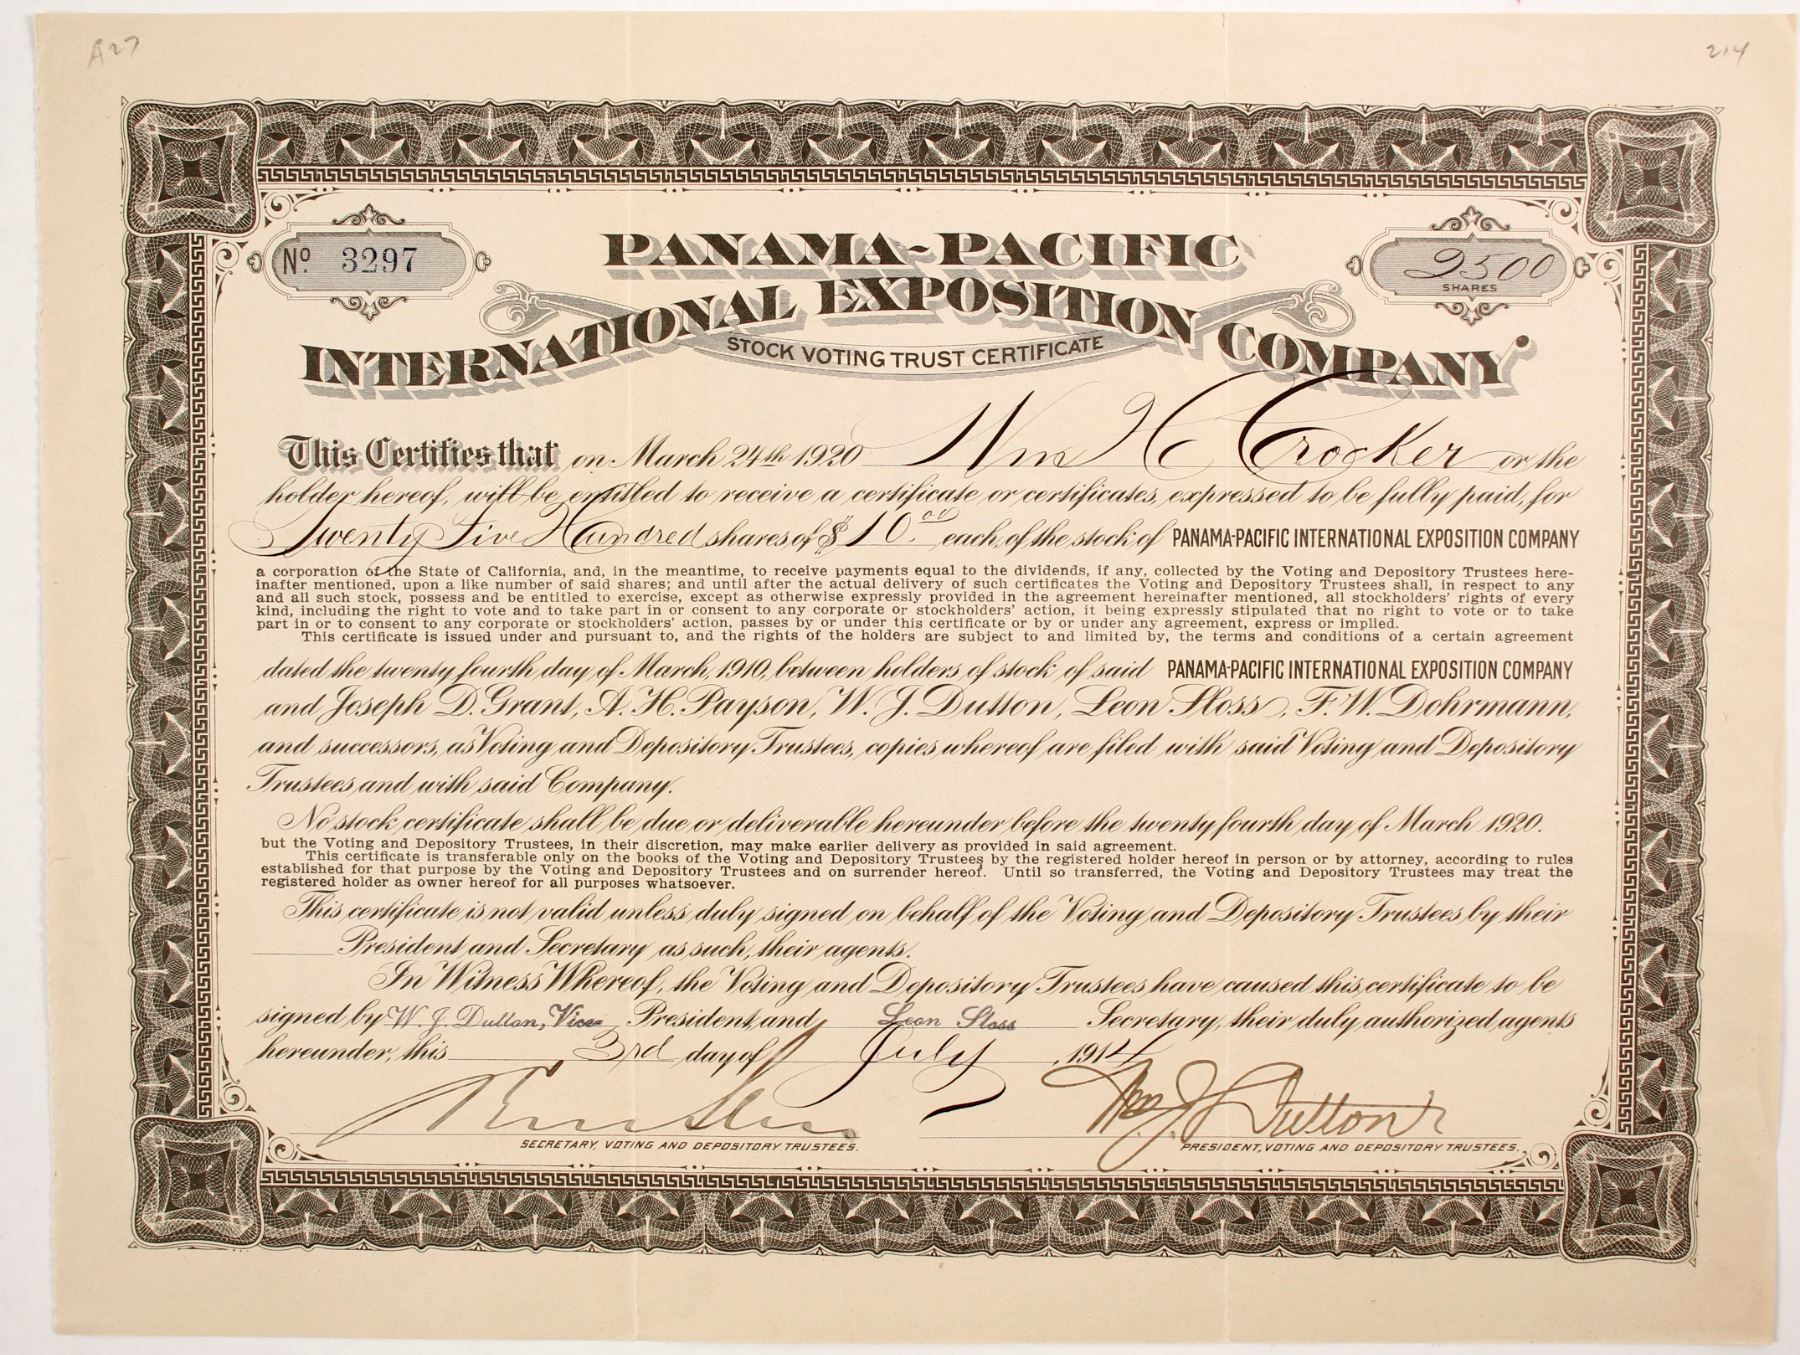 A27
214
No. 3297
2500
SHARES
PANAMA-PACIFIC
INTERNATIONAL EXPOSITION COMPANY
STOCK VOTING TRUST CERTIFICATE
This Certifies that on March 24th 1920 Wm H Crocker or the
holder hereof, will be entitled to receive a certificate or certificates, expressed to be fully paid, for
Twenty Five Hundred shares of $10.00 each, of the stock of PANAMA-PACIFIC INTERNATIONAL EXPOSITION COMPANY
a corporation of the State of California, and, in the meantime, to receive payments equal to the dividends, if any, collected by the Voting and Depository Trustees here-
inafter mentioned, upon a like number of said shares; and until after the actual delivery of such certificates the Voting and Depository Trustees shall, in respect to any
and all such stock, possess and be entitled to exercise, except as otherwise expressly provided in the agreement hereinafter mentioned, all stockholders' rights of every
kind, including the right to vote and to take part in or consent to any corporate or stockholders' action, it being expressly stipulated that no right to vote or to take
part in or to consent to any corporate or stockholders' action, passes by or under this certificate or by or under any agreement, express or implied.
This certificate is issued under and pursuant to, and the rights of the holders are subject to and limited by, the terms and conditions of a certain agreement
dated the twenty fourth day of March, 1910, between holders of stock of said PANAMA-PACIFIC INTERNATIONAL EXPOSITION COMPANY
and Joseph D. Grant, A. H. Payson, W. J. Dutton, Leon Sloss, F. W. Dohrmann,
and successors, as Voting and Depository Trustees, copies whereof are filed with said Voting and Depository
Trustees and with said Company.
No stock certificate shall be due or deliverable hereunder before the twenty fourth day of March 1920.
but the Voting and Depository Trustees, in their discretion, may make earlier delivery as provided in said agreement.
This certificate is transferable only on the books of the Voting and Depository Trustees by the registered holder hereof in person or by attorney, according to rules
established for that purpose by the Voting and Depository Trustees and on surrender hereof. Until so transferred, the Voting and Depository Trustees may treat the
registered holder as owner hereof for all purposes whatsoever.
This certificate is not valid unless duly signed on behalf of the Voting and Depository Trustees by their
President and Secretary as such, their agents.
In Witness Whereof, the Voting and Depository Trustees have caused this certificate to be
signed by W. J. Dutton, Vice- President, and Leon Sloss Secretary, their duly authorized agents
hereunder, this 3rd day of July, 1914
Leon Sloss Wm J Dutton
SECRETARY, VOTING AND DEPOSITORY TRUSTEES. PRESIDENT, VOTING AND DEPOSITORY TRUSTEES.